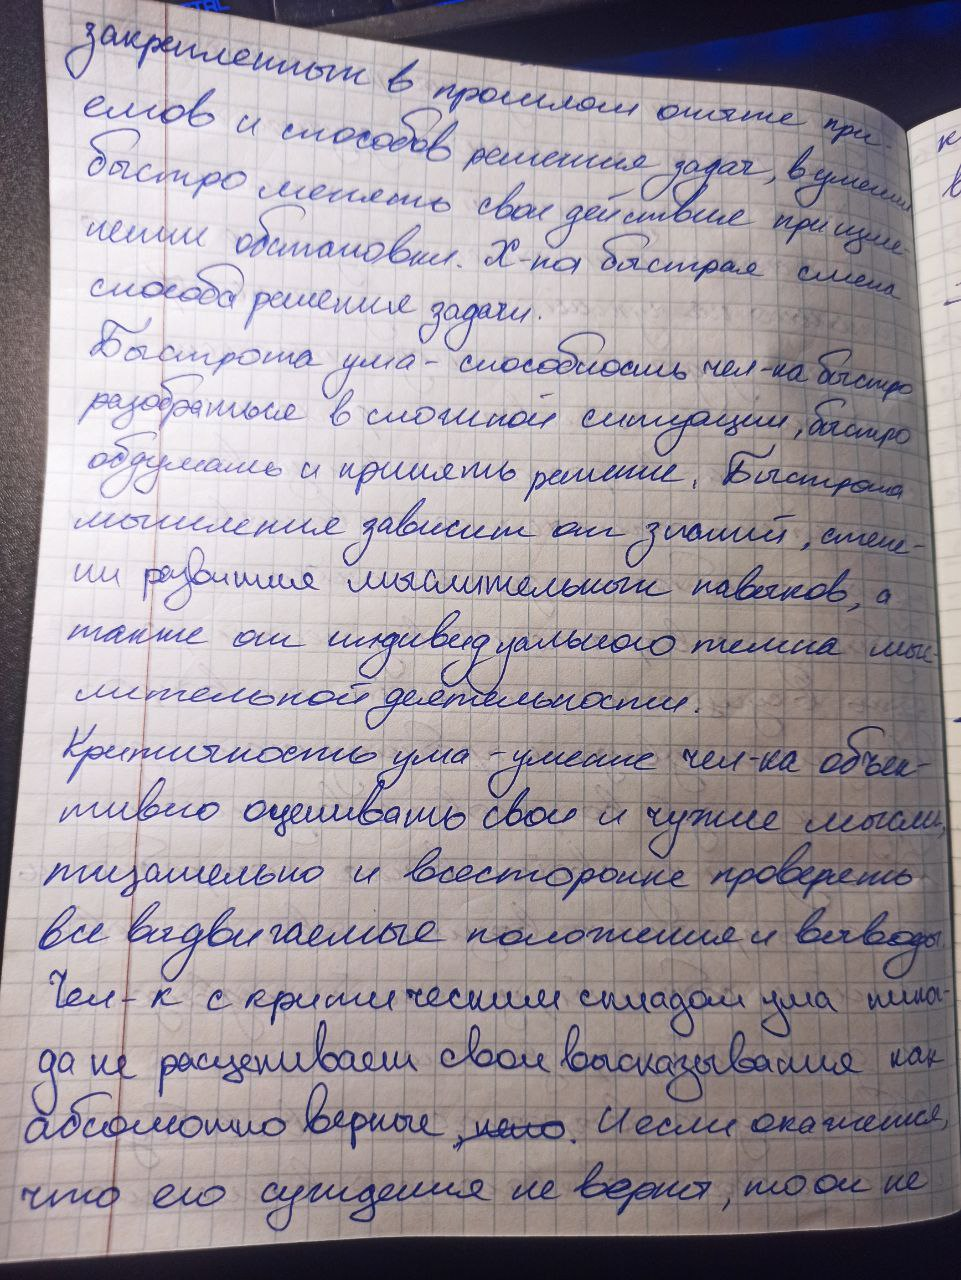 закрепленных в прошлом опыте при-
емов и способов решения задач, в умении
быстро менять свои действия при изме-
нении обстановки. Х-на быстрая смена
способа решения задачи.
Быстрота ума - способность чел-ка быстро
разобраться в сложной ситуации, быстро
обдумать и принять решение. Быстрота
мышления зависит от знаний, степе-
ни развития мыслительных навыков, а
также от индивидуального темпа мыс-
лительной деятельности.
Критичность ума - умение чел-ка объек-
тивно оценивать свои и чужие мысли,
тщательно и всесторонне проверять
все выдвигаемые положения и выводы.
Чел-к с критическим складом ума никог-
да не расценивает свои высказывания как
абсолютно верные, . И если окажется,
что его суждения не верны, то он не
к